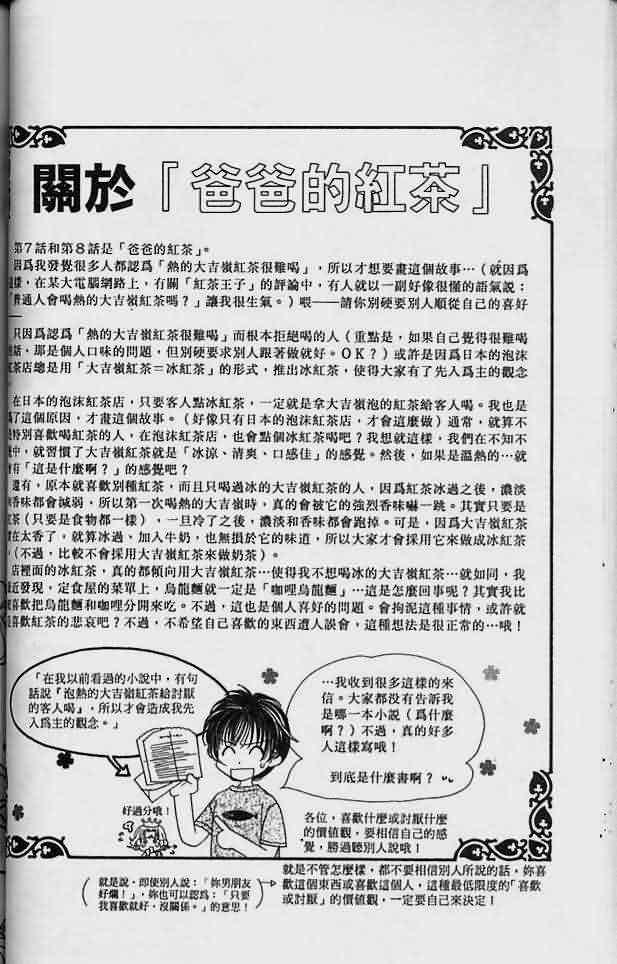 關於「爸爸的紅茶」
第7話和第8話是「爸爸的紅茶」。
因爲我發覺很多人都認爲「熱的大吉嶺紅茶很難喝」，所以才想要畫這個故事…（就因爲
這樣，在某大電腦網路上，有關「紅茶王子」的評論中，有人就以一副好像很懂的語氣說：
「普通人會喝熱的大吉嶺紅茶嗎？」讓我很生氣。）喂——請你別硬要別人順從自己的喜好
只因爲認爲「熱的大吉嶺紅茶很難喝」而根本拒絕喝的人（重點是，如果自己覺得很難喝
的話，那是個人口味的問題，但別硬要求別人跟著做就好。OK？）或許是因爲日本的泡沫
紅茶店總是用「大吉嶺紅茶＝冰紅茶」的形式，推出冰紅茶，使得大家有了先入爲主的觀念
在日本的泡沫紅茶店，只要客人點冰紅茶，一定就是拿大吉嶺泡的紅茶給客人喝。我也是
爲了這個原因，才畫這個故事。（好像只有日本的泡沫紅茶店，才會這麼做）通常，就算不
是特別喜歡喝紅茶的人，在泡沫紅茶店，也會點個冰紅茶喝吧？我想就這樣，我們在不知不
覺中，就習慣了大吉嶺紅茶就是「冰涼、清爽、口感佳」的感覺。然後，如果是溫熱的…就
會有「這是什麼啊？」的感覺吧？
還有，原本就喜歡別種紅茶，而且只喝過冰的大吉嶺紅茶的人，因爲紅茶冰過之後，濃淡
和香味都會減弱，所以第一次喝熱的大吉嶺時，真的會被它的強烈香味嚇一跳。其實只要是
紅茶（只要是食物都一樣），一旦冷了之後，濃淡和香味都會跑掉。可是，因爲大吉嶺紅茶
實在太香了，就算冰過、加入牛奶，也無損於它的味道，所以大家才會採用它來做成冰紅茶
（不過，比較不會採用大吉嶺紅茶來做奶茶）。
店裡面的冰紅茶，真的都傾向用大吉嶺紅茶…使得我不想喝冰的大吉嶺紅茶…就如同，我
最近發現，定食屋的菜單上，烏龍麵就一定是「咖哩烏龍麵」…這是怎麼回事呢？其實我比
較喜歡把烏龍麵和咖哩分開來吃。不過，這也是個人喜好的問題。會拘泥這種事情，或許就
是喜歡紅茶的悲哀吧？不過，不希望自己喜歡的東西遭人誤會，這種想法是很正常的…哦！
「在我以前看過的小說中，有句
話說「泡熱的大吉嶺紅茶給討厭
的客人喝」，所以才會造成我先
入爲主的觀念。」
…我收到很多這樣的來
信。大家都沒有告訴我
是哪一本小說（爲什麼
啊？）不過，真的好多
人這樣寫哦！
到底是什麼書啊？
好過分哦！
各位，喜歡什麼或討厭什麼
的價值觀，要相信自己的感
覺，勝過聽別人說哦！
就是說，即使別人說：「妳男朋友
好爛！」，妳也可以認爲：「只要
我喜歡就好，沒關係。」的意思！
就是不管怎麼樣，都不要相信別人所說的話，妳喜
歡這個東西或喜歡這個人，這種最低限度的「喜歡
或討厭」的價值觀，一定要自己來決定！